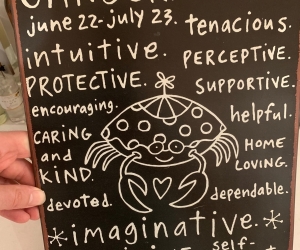 june 22-july 23.
tenacious.
intuitive.
PERCEPTIVE.
PROTECTIVE.
SUPPORTIVE.
encouraging.
helpful.
CARING
and
KIND.
HOME
LOVING.
devoted.
dependable.
*imaginative.*
self-